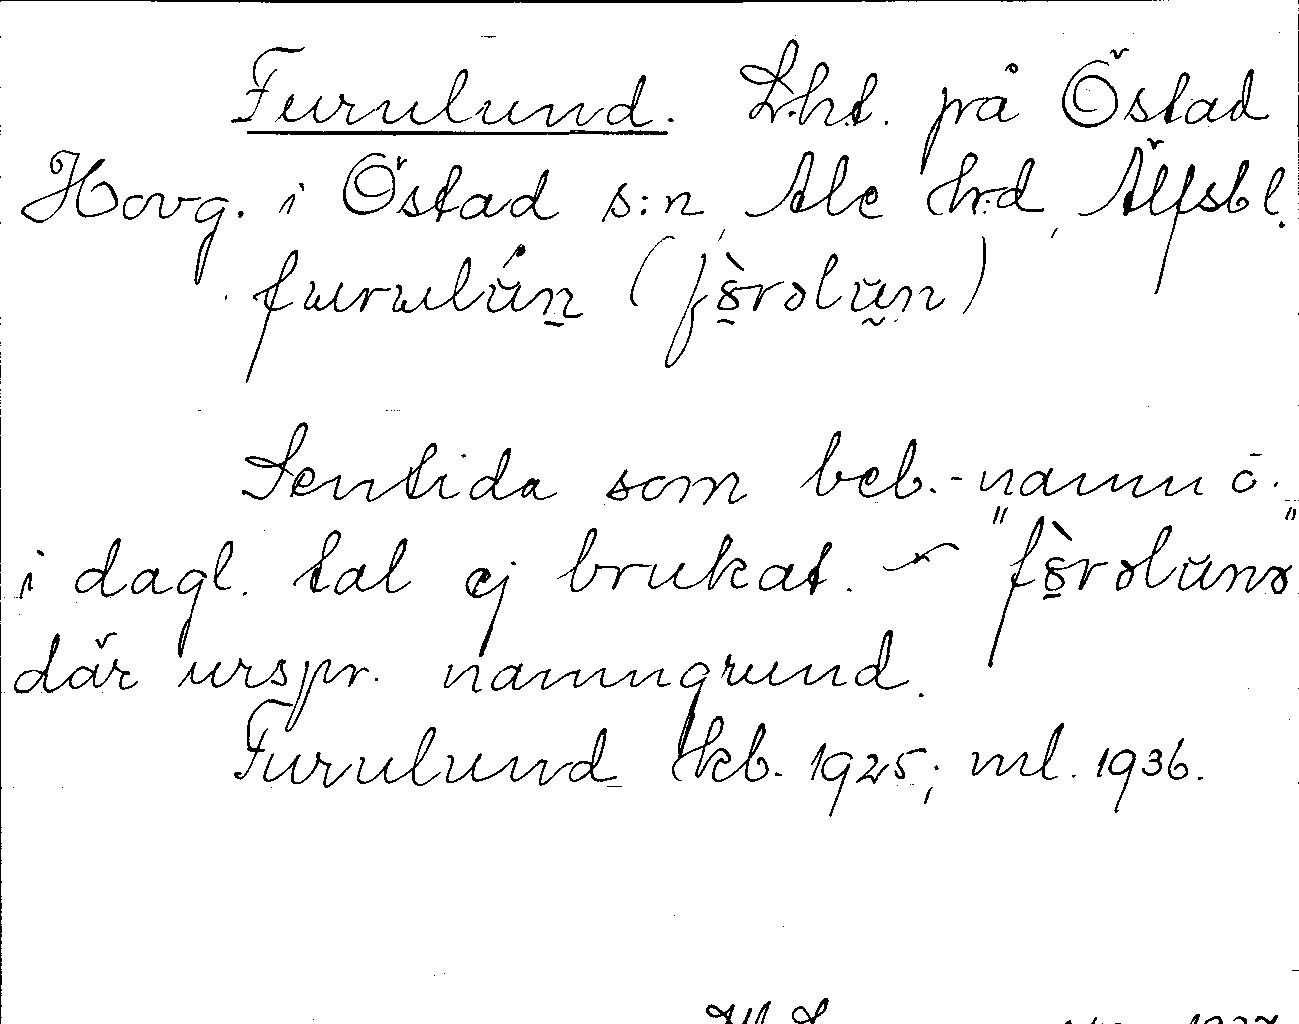 Furulund. Lht. på Östad
Hovg. i Östad s:n, Ale h:d, Älfsbl.
furulún̲ (fə̀rəlŭn)
Sentida som beb.-namn o.
i dagl. tal ej brukat. "fə̀rəlŭnə"
där urspr. namngrund.
Furulund Hkb. 1925; ml. 1936.